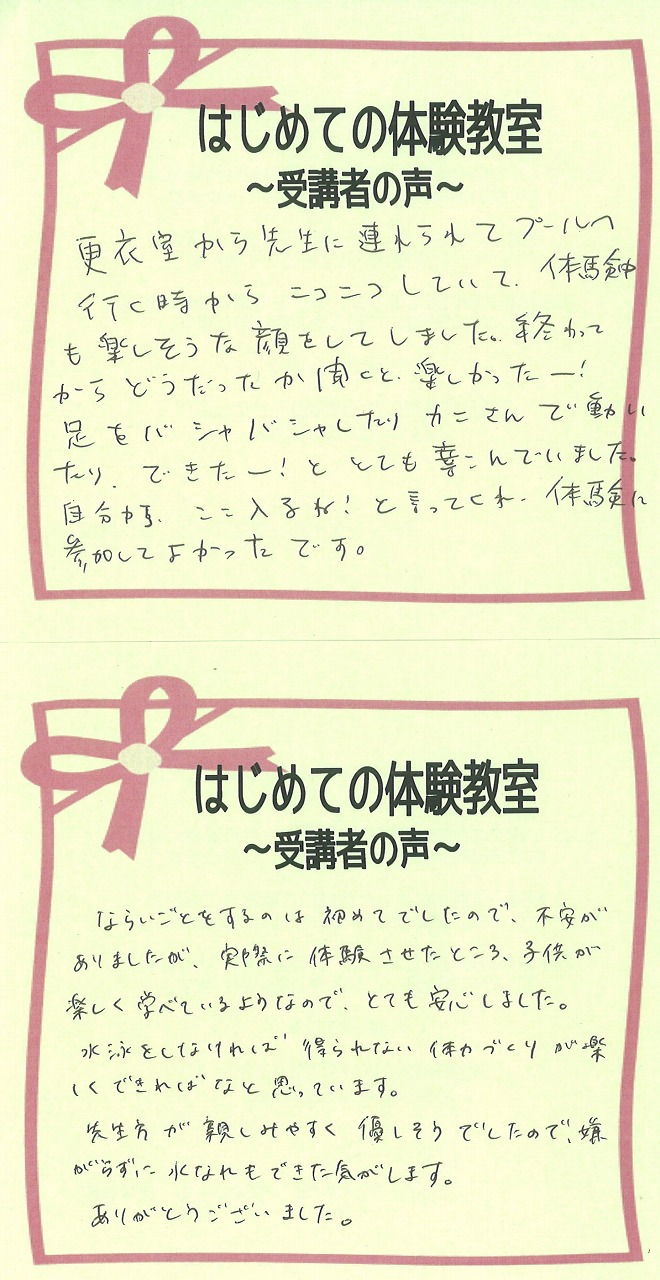 はじめての体験教室
～受講者の声～
更衣室から先生に連れられてプールへ
行く時からニコニコしていて、体験中
も楽しそうな顔をしてしました。終わって
からどうだったか聞くと、楽しかったー!
足をバシャバシャしたりカニさんで動い
たり、できたー!ととても喜こんでいました。
自分から、ここ入るね!と言ってくれ、体験に
参加してよかったです。
はじめての体験教室
～受講者の声～
ならいごとをするのは初めてでしたので、不安が
ありましたが、実際に体験させたところ、子供が
楽しく学べているようなので、とても安心しました。
水泳をしなければ得られない体力づくりが楽
しくできればなと思っています。
先生方が親しみやすく優しそうでしたので、嫌
がらずに水なれもできた気がします。
ありがとうございました。